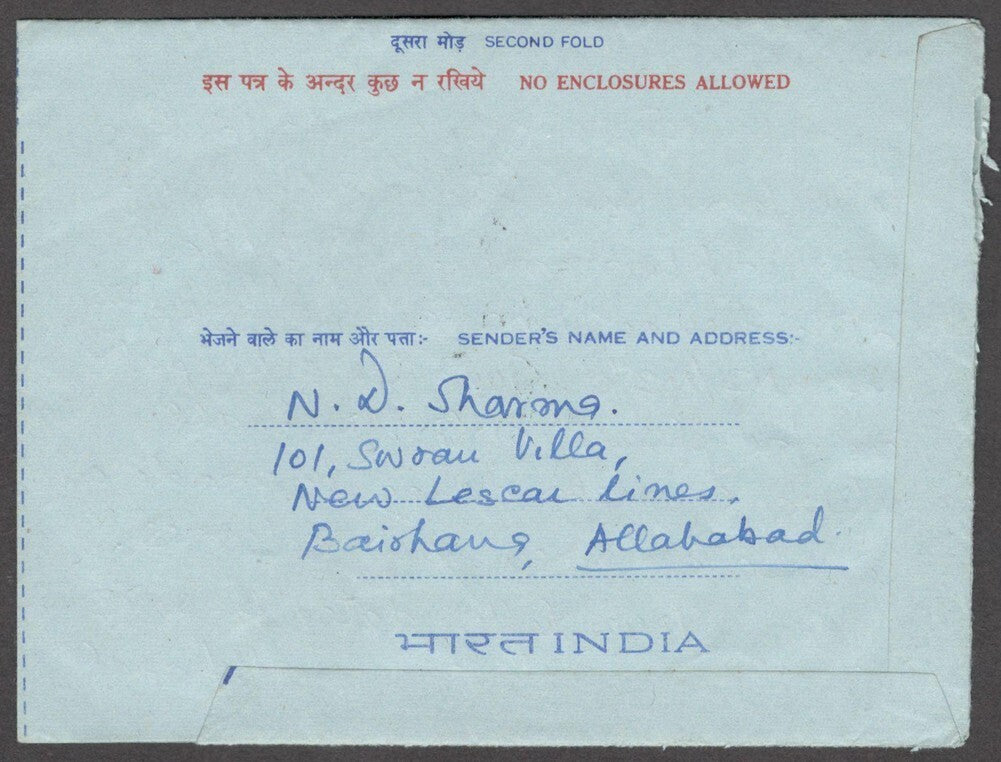 दूसरा मोड़ SECOND FOLD
इस पत्र के अन्दर कुछ न रखिये NO ENCLOSURES ALLOWED
भेजने वाले का नाम और पता:- SENDER'S NAME AND ADDRESS:-
N. D. Sharma.
101, Swran Villa,
New Lescar lines,
Bairhana, Allahabad
भारत INDIA